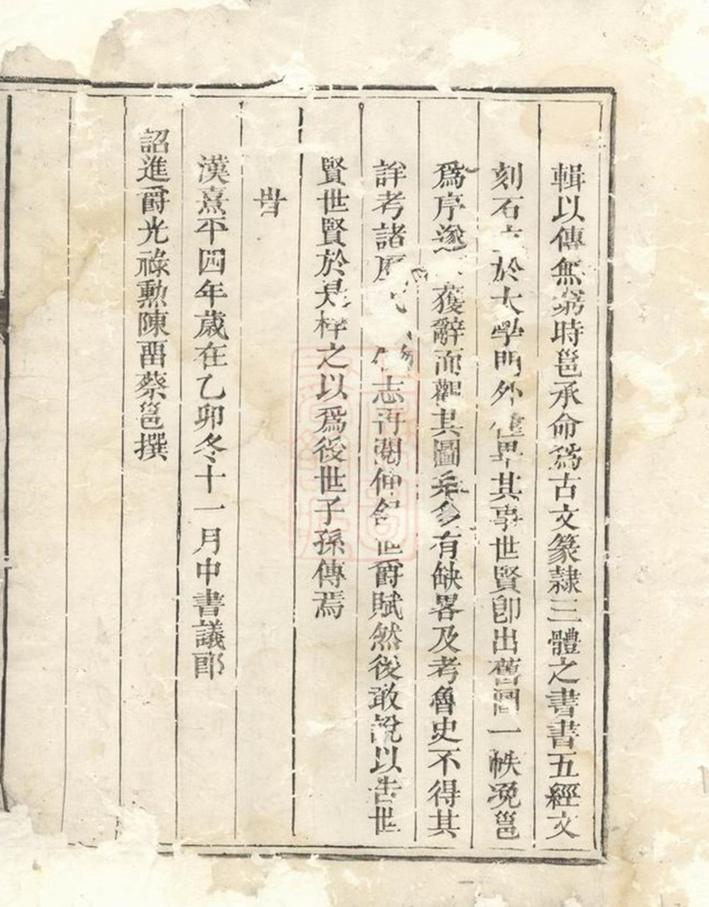 輯以傳無窮時邕承命爲古文篆隸三體之書書五經文
刻石立於大學門外僅畢其事世賢卽出舊圖一帙浼邕
爲序遂獲辭而觀其圖系多有缺畧及考魯史不得其
詳考諸志再閱仲舒世爵賦然後敢說以吿世
賢世賢於是梓之以爲後世子孫傳焉
旹
漢熹平四年歲在乙卯冬十一月中書議郎
詔進爵光祿勳陳畱蔡邕撰